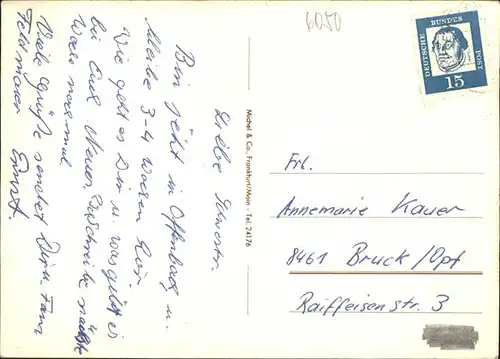 6050
DEUTSCHE BUNDES POST
15
Liebe Schwester
Bin jetzt in Offenbach u.
bleibe 3-4 Wochen hir.
Wie geht es Dir u. was gibt es
bei Euch Neues, Schreibe nächste
Woch noch mal.
Viele Grüße sendet Dir u. Fam
Feldmaier Ernst.
Michel & Co., Frankfurt/Main - Tel. 24176
Frl.
Annemarie Kauer
8461 Bruck/Opf
Raiffeisenstr. 3